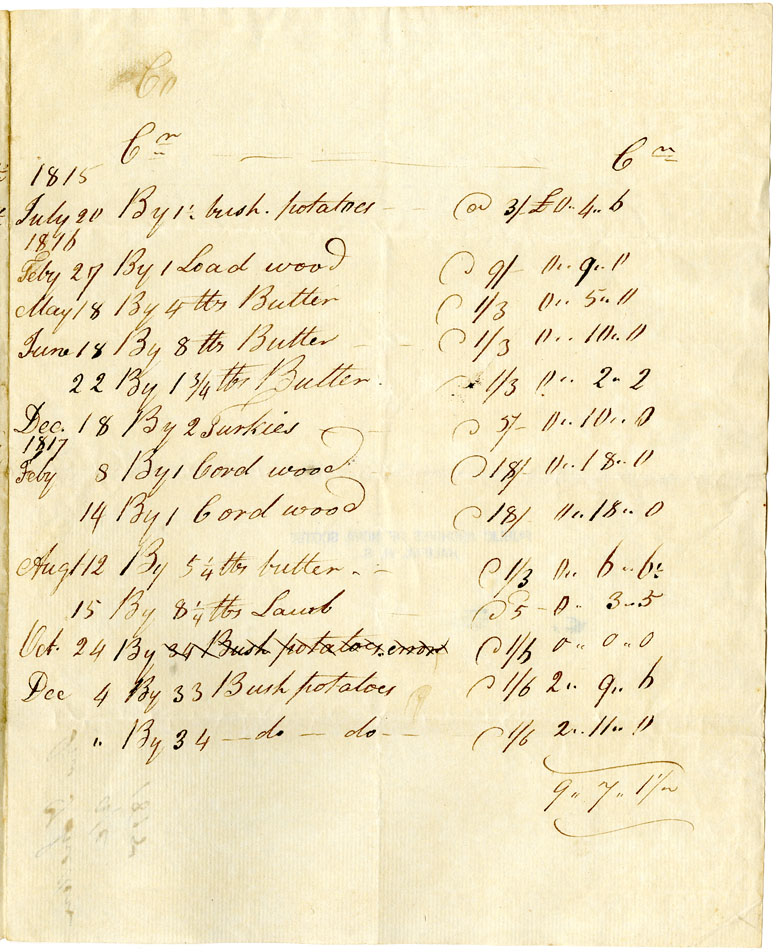 Co
Cr Cr
1815
July 20 By 1½ bush. potatoes @ 3/ £0..4..6
1816
Feby 27 By 1 Load wood @ 9/ 0..9..0
May 18 By 4 lbs Butter @ 1/3 0..5..0
June 18 By 8 lbs Butter @ 1/3 0..10..0
22 By 1 3/4 lbs Butter. 1/3 0..2..2
Dec. 18 By 2 Turkies @ 5/ 0..10..0
1817
Feby 8 By 1 Cord wood @ 18/ 0..18..0
14 By 1 Cord wood @ 18/ 0..18..0
Augt 12 By 5¼ lbs butter @ 1/3 0..6..6½
15 By 8¼ lbs Lamb @ 5 0..3..5
Oct. 24 By 34 Bush potatoes. error @ 1/6 0..0..0
Dec 4 By 33 Bush potatoes @ 1/6 2..9..6
" By 34 — do — do @ 1/6 2..11..0
9..7..1½
PUBLIC ARCHIVES OF NOVA SCOTIA
HALIFAX, N. S.